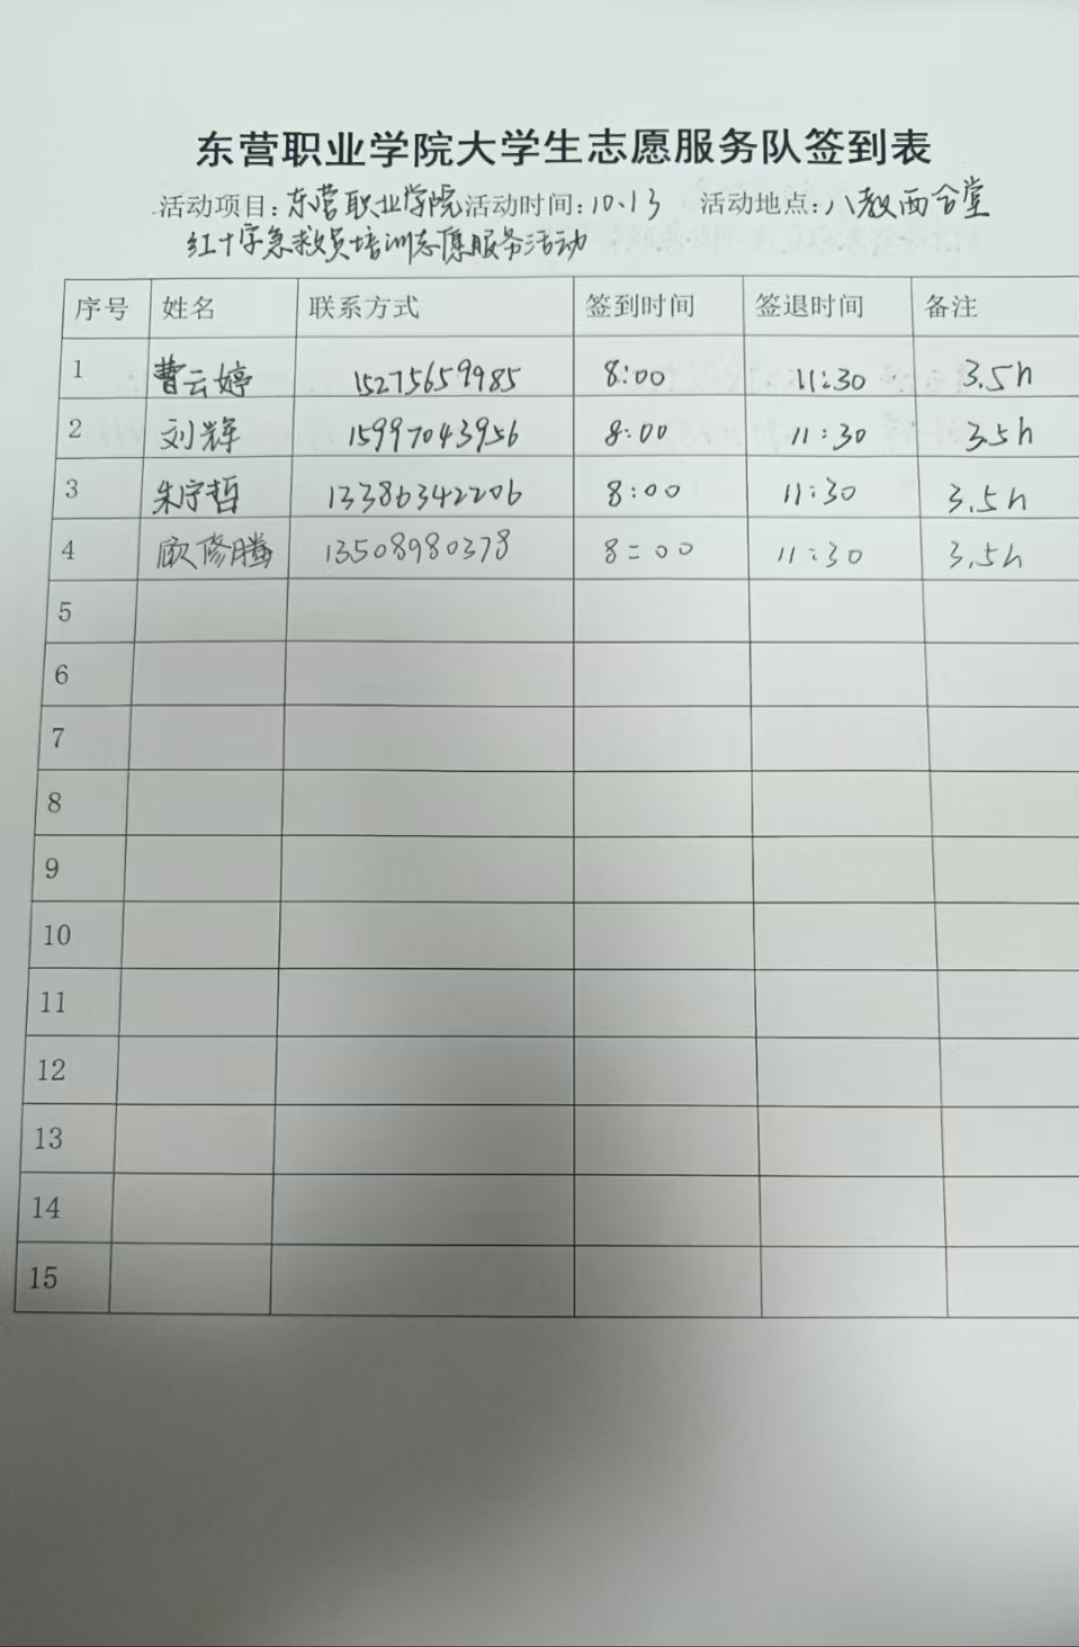 东营职业学院大学生志愿服务队签到表
活动项目:东营职业学院活动时间:10、13 活动地点:八教西合堂
红十字急救员培训志愿服务活动
序号 姓名 联系方式 签到时间 签退时间 备注
1 曹云婷 15275659985 8:00 11:30 3.5h
2 刘辉 15997043956 8:00 11:30 3.5h
3 朱宁哲 13386342206 8:00 11:30 3.5h
4 顾修腾 13508980378 8:00 11:30 3.5h
5
6
7
8
9
10
11
12
13
14
15